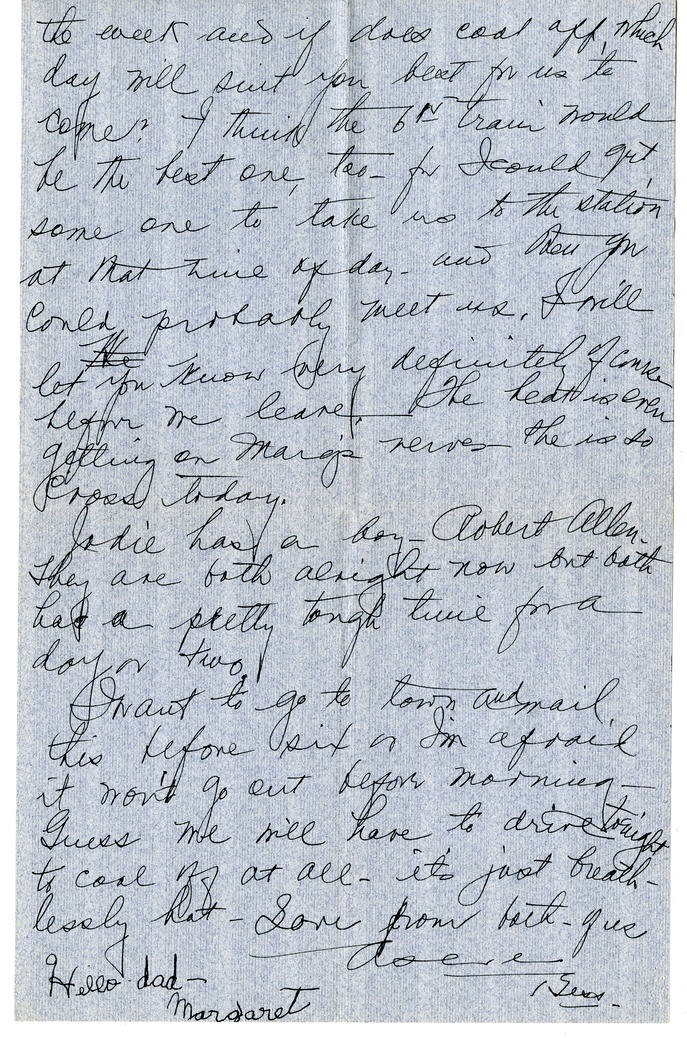 the week and if does cool off, which
day will suit you best for us to
come? I think the 6 train would
be the best one, too - for I could get
some one to take us to the station
at that time of day - and then you
could probably meet us. I will
let you know very definitely of course
before we leave. The heat is even
getting on Marg's nerves she is so
cross today.
Jodie has a boy - Robert Allen.
They are both alright now but both
had a pretty tough time for a
day or two.
I want to go to town and mail
this before six or I'm afraid
it won't go out before morning -
Guess we will have to drive tonight
to cool off at all - it's just breath-
lessly hot - Love from both - yus
Bess.
Hello dad -
Margaret